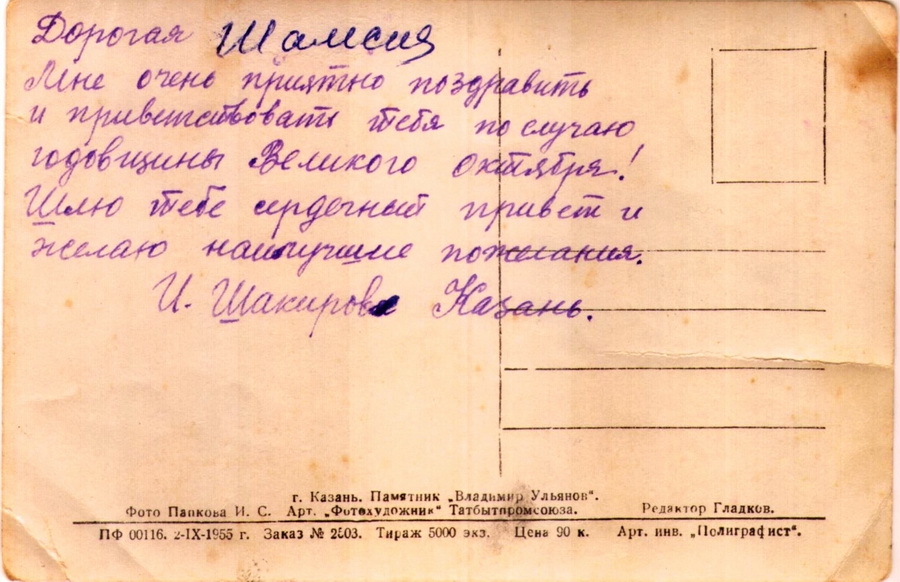 Дорогая Шамсия
Мне очень приятно поздравить
и приветствовать тебя по случаю
годовщины Великого октября!
Шлю тебе сердечный привет и
желаю наилучшие пожелания.
И. Шакирова Казань.
г. Казань. Памятник „Владимир Ульянов“.
Фото Папкова И. С. Арт. „Фотохудожник“ Татбытпромсоюза. Редактор Гладков.
ПФ 00116. 2-IX-1955 г. Заказ № 2503. Тираж 5000 экз. Цена 90 к. Арт. инв. „Полиграфист“.